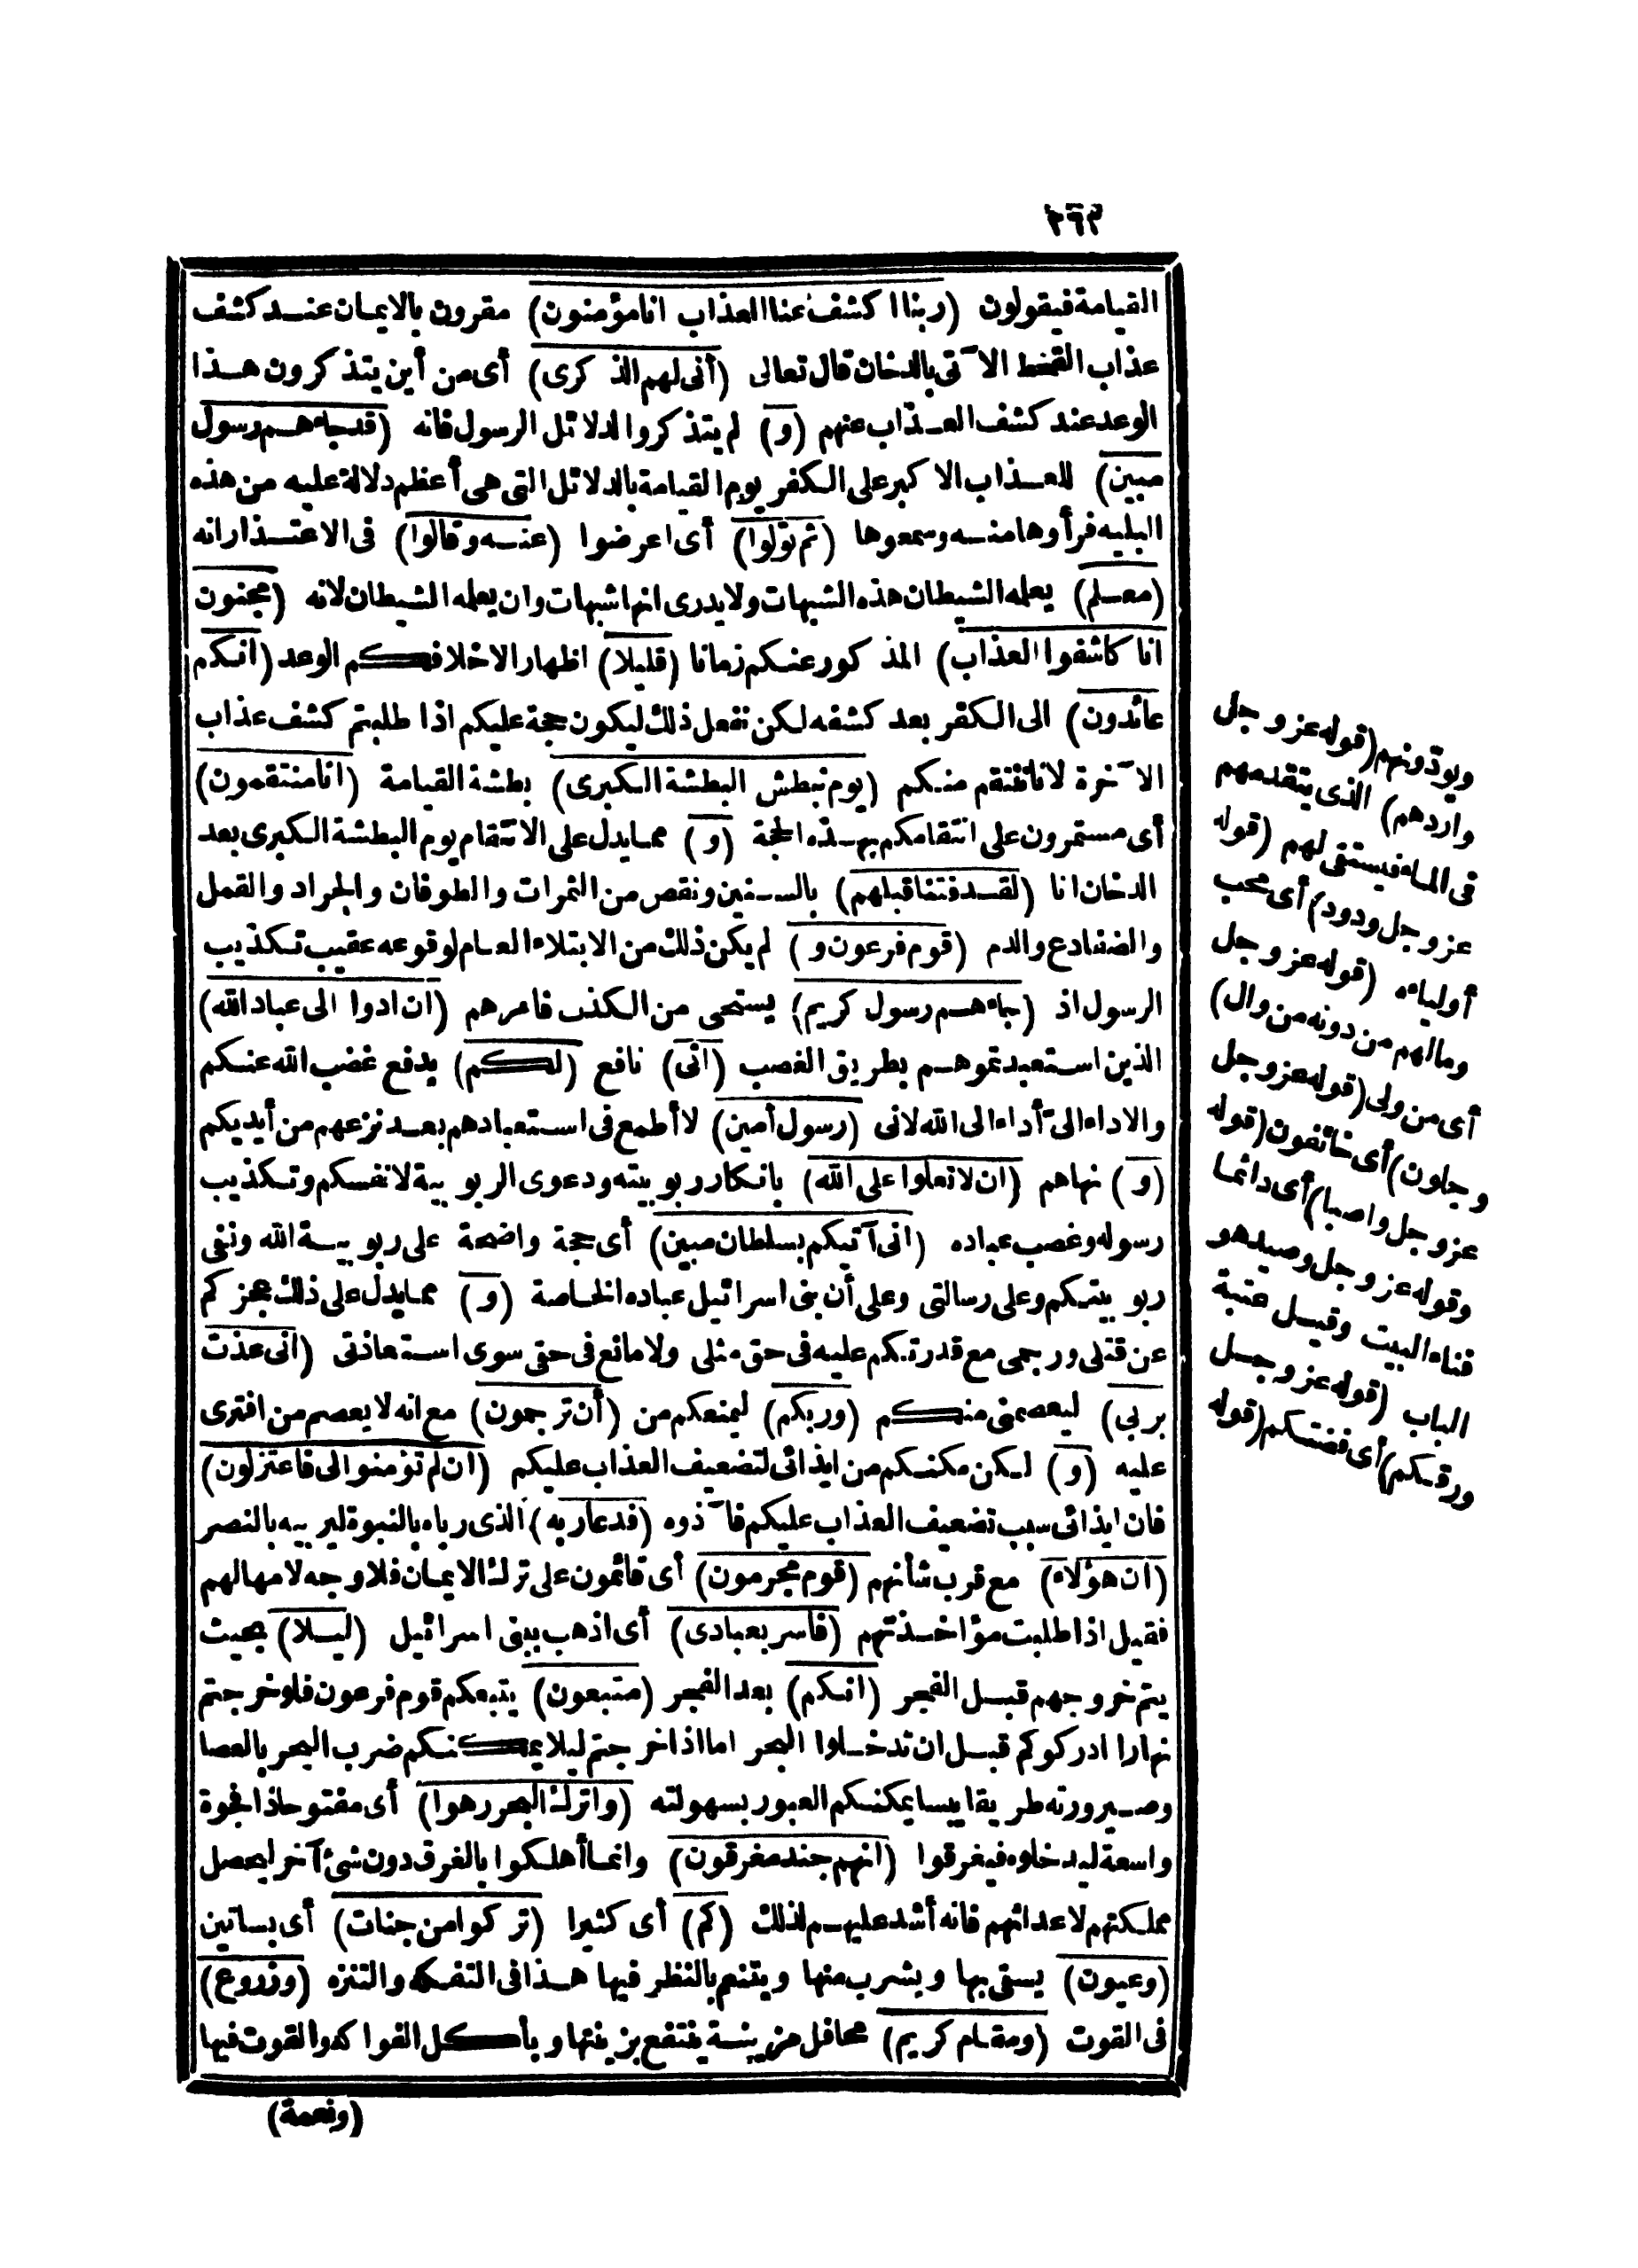 ٢٦٢
القيامة فيقولون (ربنا اكشف عنا العذاب انا مؤمنون) مقرون بالايمان عند كشف
عذاب القحط الآتى بالدخان قال تعالى (أنى لهم الذكرى) أى من أين يتذكرون هذا
الوعد عند كشف العذاب عنهم (و) لم يتذكروا لدلائل الرسول فانه (قد جاءهم رسول
مبين) للعذاب الاكبر على الكفر يوم القيامة بالدلائل التى هى أعظم دلالة عليه من هذه
البليه فرأوها منه وسمعوها (ثم تولوا) أى اعرضوا (عنه وقالوا) فى الاعتذار انه
(معلم) يعلمه الشيطان هذه الشبهات ولا يدرى انها شبهات وان يعلمه الشيطان لانه (مجنون
انا كاشفوا العذاب) المذكور عنكم زمانا (قليلا) اظهارا لاخلافكم الوعد (انكم
عائدون) الى الكفر بعد كشفه لكن نفعل ذلك ليكون حجة عليكم اذا طلبتم كشف عذاب
الآخرة لانا ننتقم منكم (يوم نبطش البطشة الكبرى) بطشة القيامة (انا منتقمون)
أى مستمرون على انتقامكم بهذه الحجة (و) مما يدل على الانتقام يوم البطشة الكبرى بعد
الدخان انا (لقد فتنا قبلهم) بالسنين ونقص من الثمرات والطوفان والجراد والقمل
والضفادع والدم (قوم فرعون و) لم يكن ذلك من الابتلاء العام لوقوعه عقيب تكذيب
الرسول اذ (جاءهم رسول كريم) يستحى من الكذب فامرهم (ان ادوا الى عباد الله)
الذين استعبدتموهم بطريق الغصب (انى) نافع (لكم) يدفع غضب الله عنكم
والاداء الىّ أداء الى الله لانى (رسول أمين) لا أطمع فى استعبادهم بعد نزعهم من أيديكم
(و) نهاهم (ان لا تعلوا على الله) بانكار ربوبيته ودعوى الربوبية لانفسكم وتكذيب
رسوله وغصب عباده (انى آتيكم بسلطان مبين) أى حجة واضحة على ربوبية الله ونفى
ربوبيتكم وعلى رسالتى وعلى أن بنى اسرائيل عباده الخاصة (و) مما يدل على ذلك عجزكم
عن قتلى ورجمى مع قدرتكم عليه فى حق مثلى ولا مانع فى حقى سوى استعاذتى (انى عذت
بربى) ليعصمنى منكم (وربكم) ليمنعكم من (أن ترجمون) مع انه لا يعصم من افترى
عليه (و) لكن مكنكم من ايذائى لتضعيف العذاب عليكم (ان لم تؤمنوا لى فاعتزلون)
فان ايذائى سبب تضعيف العذاب عليكم فآذوه (فدعا ربه) الذى رباه بالنبوة ليربيه بالنصر
(ان هؤلاء) مع قرب شأنهم (قوم مجرمون) أى قائمون على ترك الايمان فلا وجه لامهالهم
فقيل اذا طلبت مؤاخذتهم (فأسر بعبادى) أى اذهب ببنى اسرائيل (ليلا) بحيث
يتم خروجهم قبل الفجر (انكم) بعد الفجر (متبعون) يتبعكم قوم فرعون فلو خرجتم
نهارا ادركوكم قبل ان تدخلوا البحر اما اذا خرجتم ليلا يمكنكم ضرب البحر بالعصا
وصيرورته طريقا يبسا يمكنكم العبور بسهولته (واترك البحر رهوا) أى مفتوحا ذا فجوة
واسعة ليدخلوه فيغرقوا (انهم جند مغرقون) وانما أهلكوا بالغرق دون شئ آخر ليحصل
مملكتهم لاعدائهم فانه أشد عليهم لذلك (كم) أى كثيرا (تركوا من جنات) أى بساتين
(وعيون) يسقى بها ويشرب منها ويتنعم بالنظر فيها هذا فى التفكه والتنزه (وزروع)
فى القوت (ومقام كريم) محافل مزينة ينتفع بزينتها ويأكل الفواكه والقوت فيها
(ونعمة)
ويودّونهم (قوله عز وجل
واردهم) الذى يتقدمهم
فى الماء فيستقى لهم (قوله
عز وجل ودود) أى محب
أولياءه (قوله عز وجل
وما لهم من دونه من وال)
أى من ولى (قوله عز وجل
وجلون) أى خائفون (قوله
عز وجل واصبا) أى دائما
وقوله عز وجل وصيد هو
فناء البيت وقيل عتبة
الباب (قوله عز وجل
ورقكم) أى فضتكم (قوله